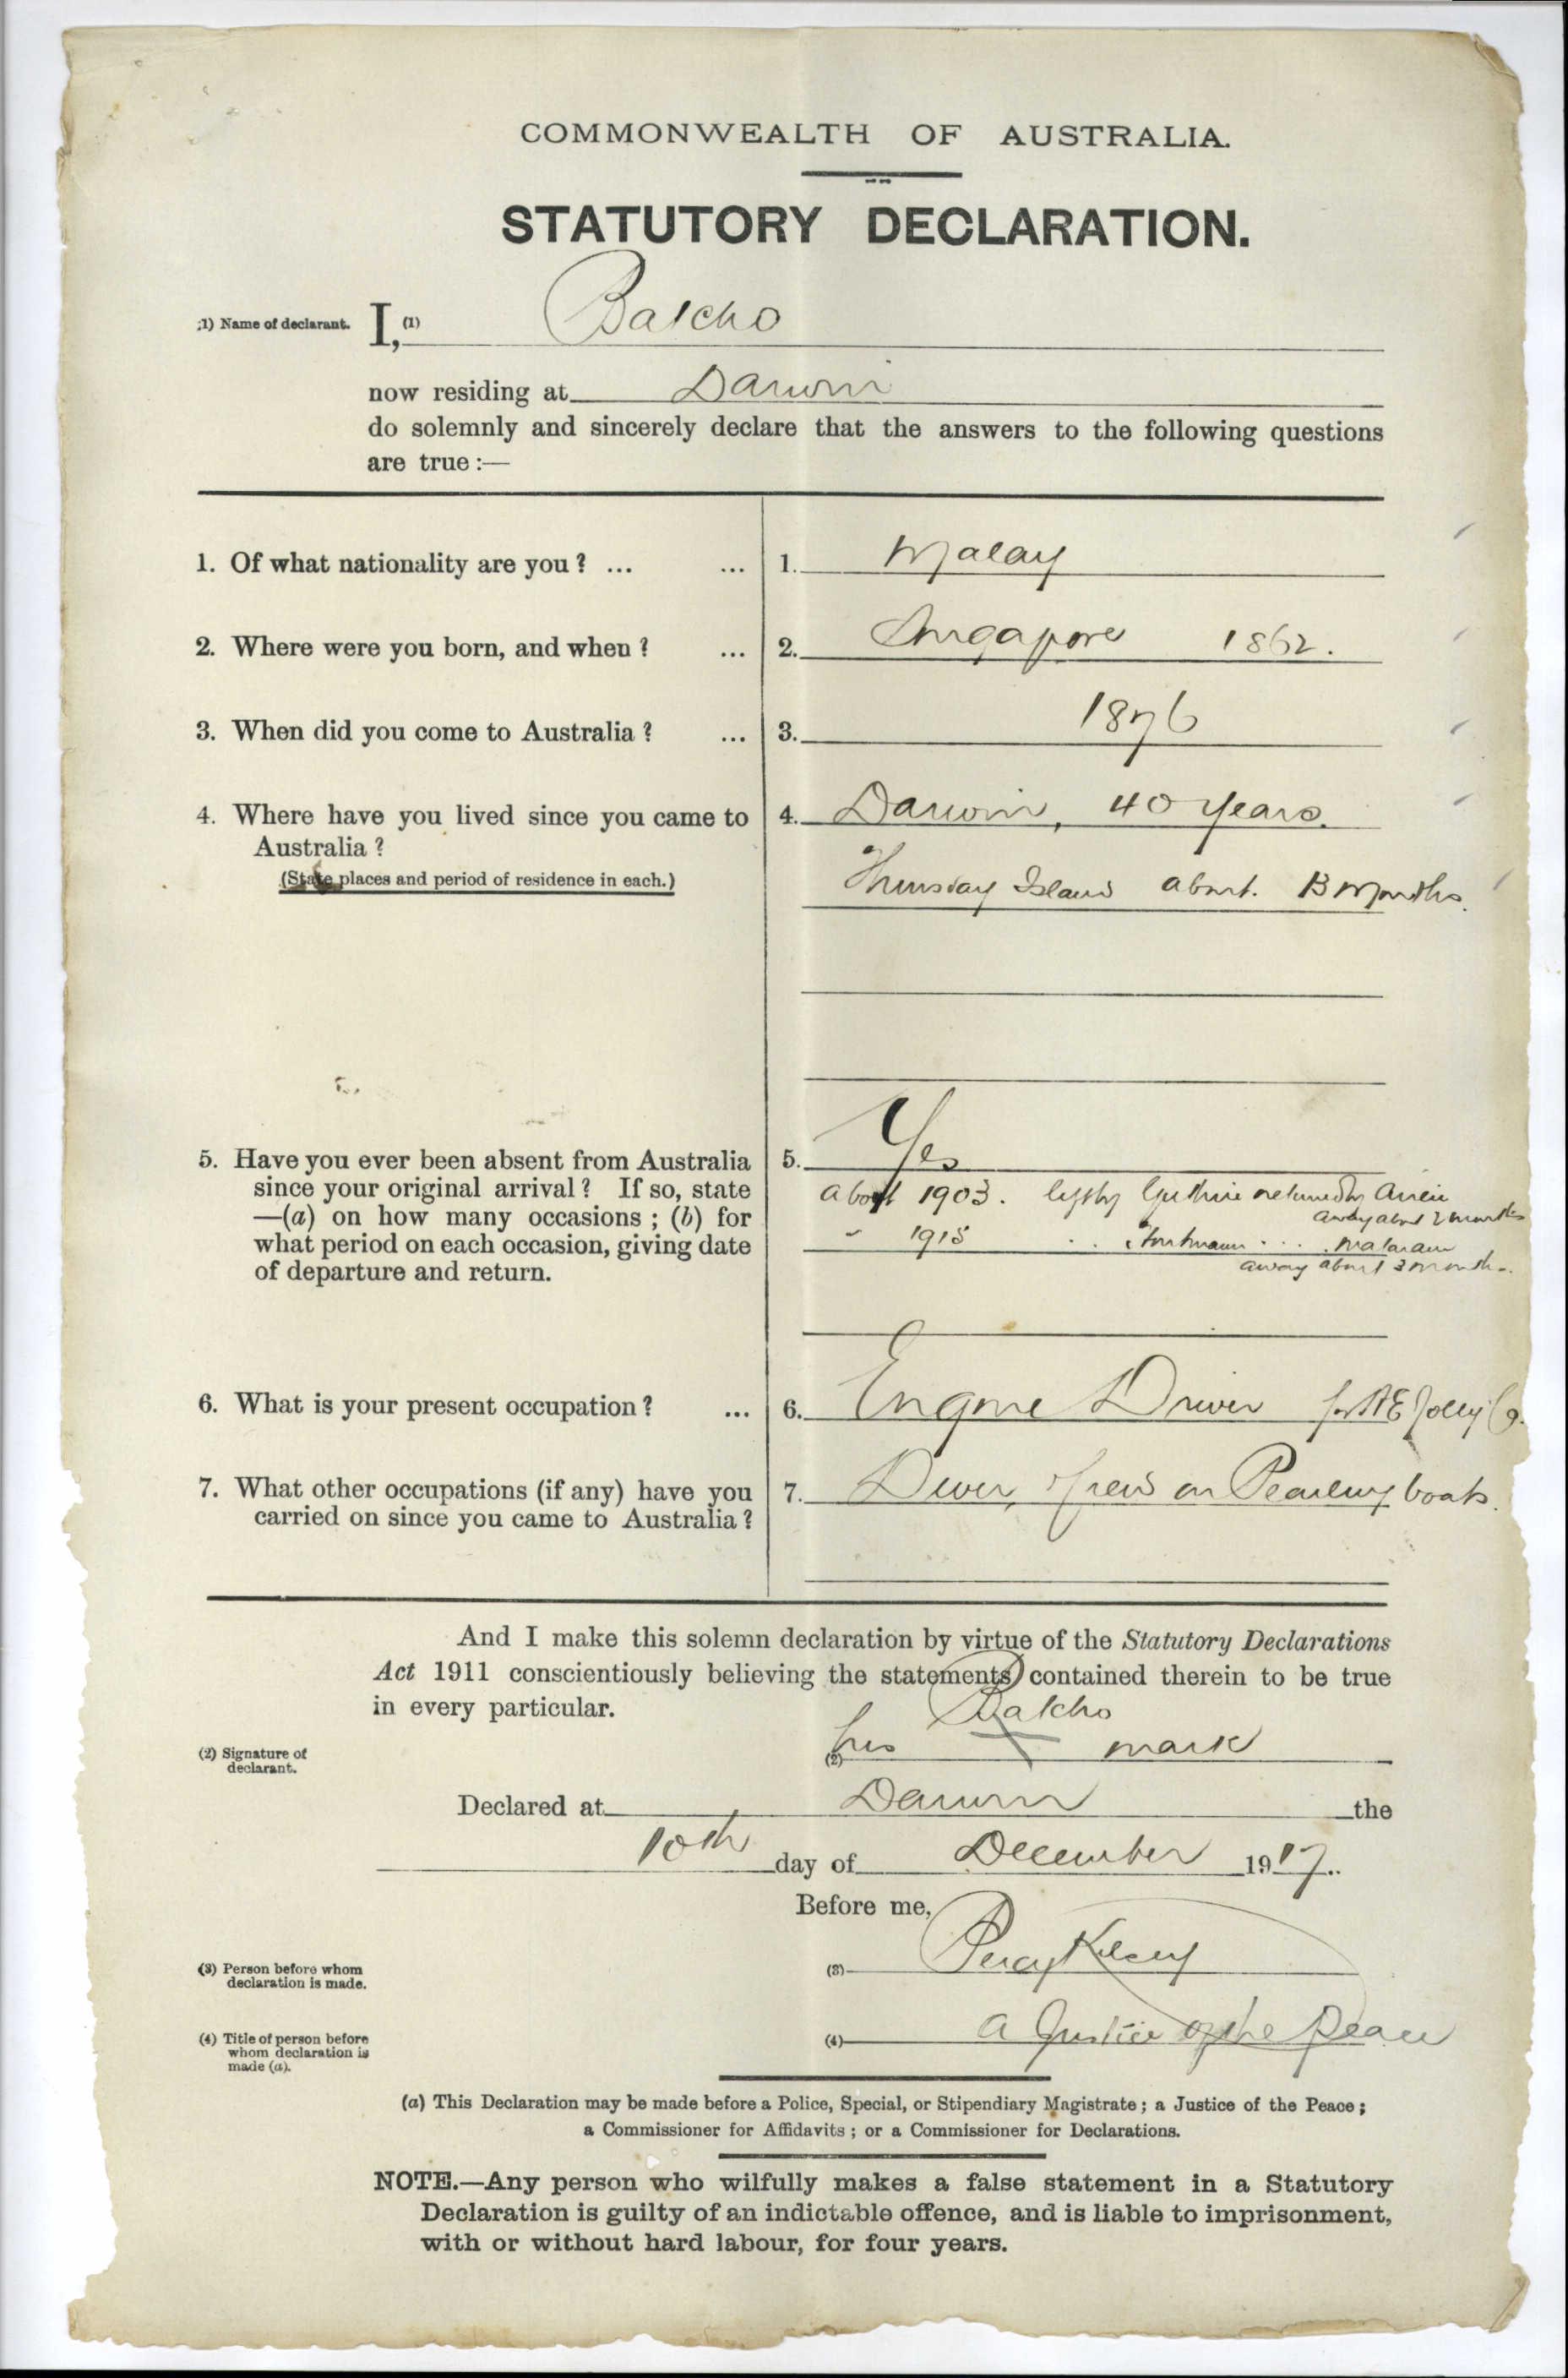 COMMONWEALTH OF AUSTRALIA.
STATUTORY DECLARATION.
(1) Name of declarant. I, (1) Balcho
now residing at Darwin
do solemnly and sincerely declare that the answers to the following questions
are true :—
1. Of what nationality are you ? ... ... 1. Malay
2. Where were you born, and when ? ... 2. Singapore 1862.
3. When did you come to Australia ? ... 3. 1876
4. Where have you lived since you came to 4. Darwin, 40 years.
Australia ?
(State places and period of residence in each.) Thursday Island about. 13 Months.
Yes
5. Have you ever been absent from Australia 5.
since your original arrival ? If so, state about 1903. left by Guthrie returned by Airlie
—(a) on how many occasions ; (b) for away about 2 months
what period on each occasion, giving date " 1915 . . . . . Mataram
of departure and return. away about 3 months.
6. What is your present occupation ? ... 6. Engine Driver for A E Jolly Co.
7. What other occupations (if any) have you 7. Diver, crew on Pearling boats.
carried on since you came to Australia ?
And I make this solemn declaration by virtue of the Statutory Declarations
Act 1911 conscientiously believing the statements contained therein to be true
in every particular.
Balcho
(2) Signature of declarant. (2) his X mark
Declared at Darwin the
10th day of December 1917.
Before me,
(3) Person before whom declaration is made. (3) Percy Kelsey
(4) Title of person before whom declaration is made (a). (4) a Justice of the Peace
(a) This Declaration may be made before a Police, Special, or Stipendiary Magistrate ; a Justice of the Peace ;
a Commissioner for Affidavits ; or a Commissioner for Declarations.
NOTE.—Any person who wilfully makes a false statement in a Statutory
Declaration is guilty of an indictable offence, and is liable to imprisonment,
with or without hard labour, for four years.